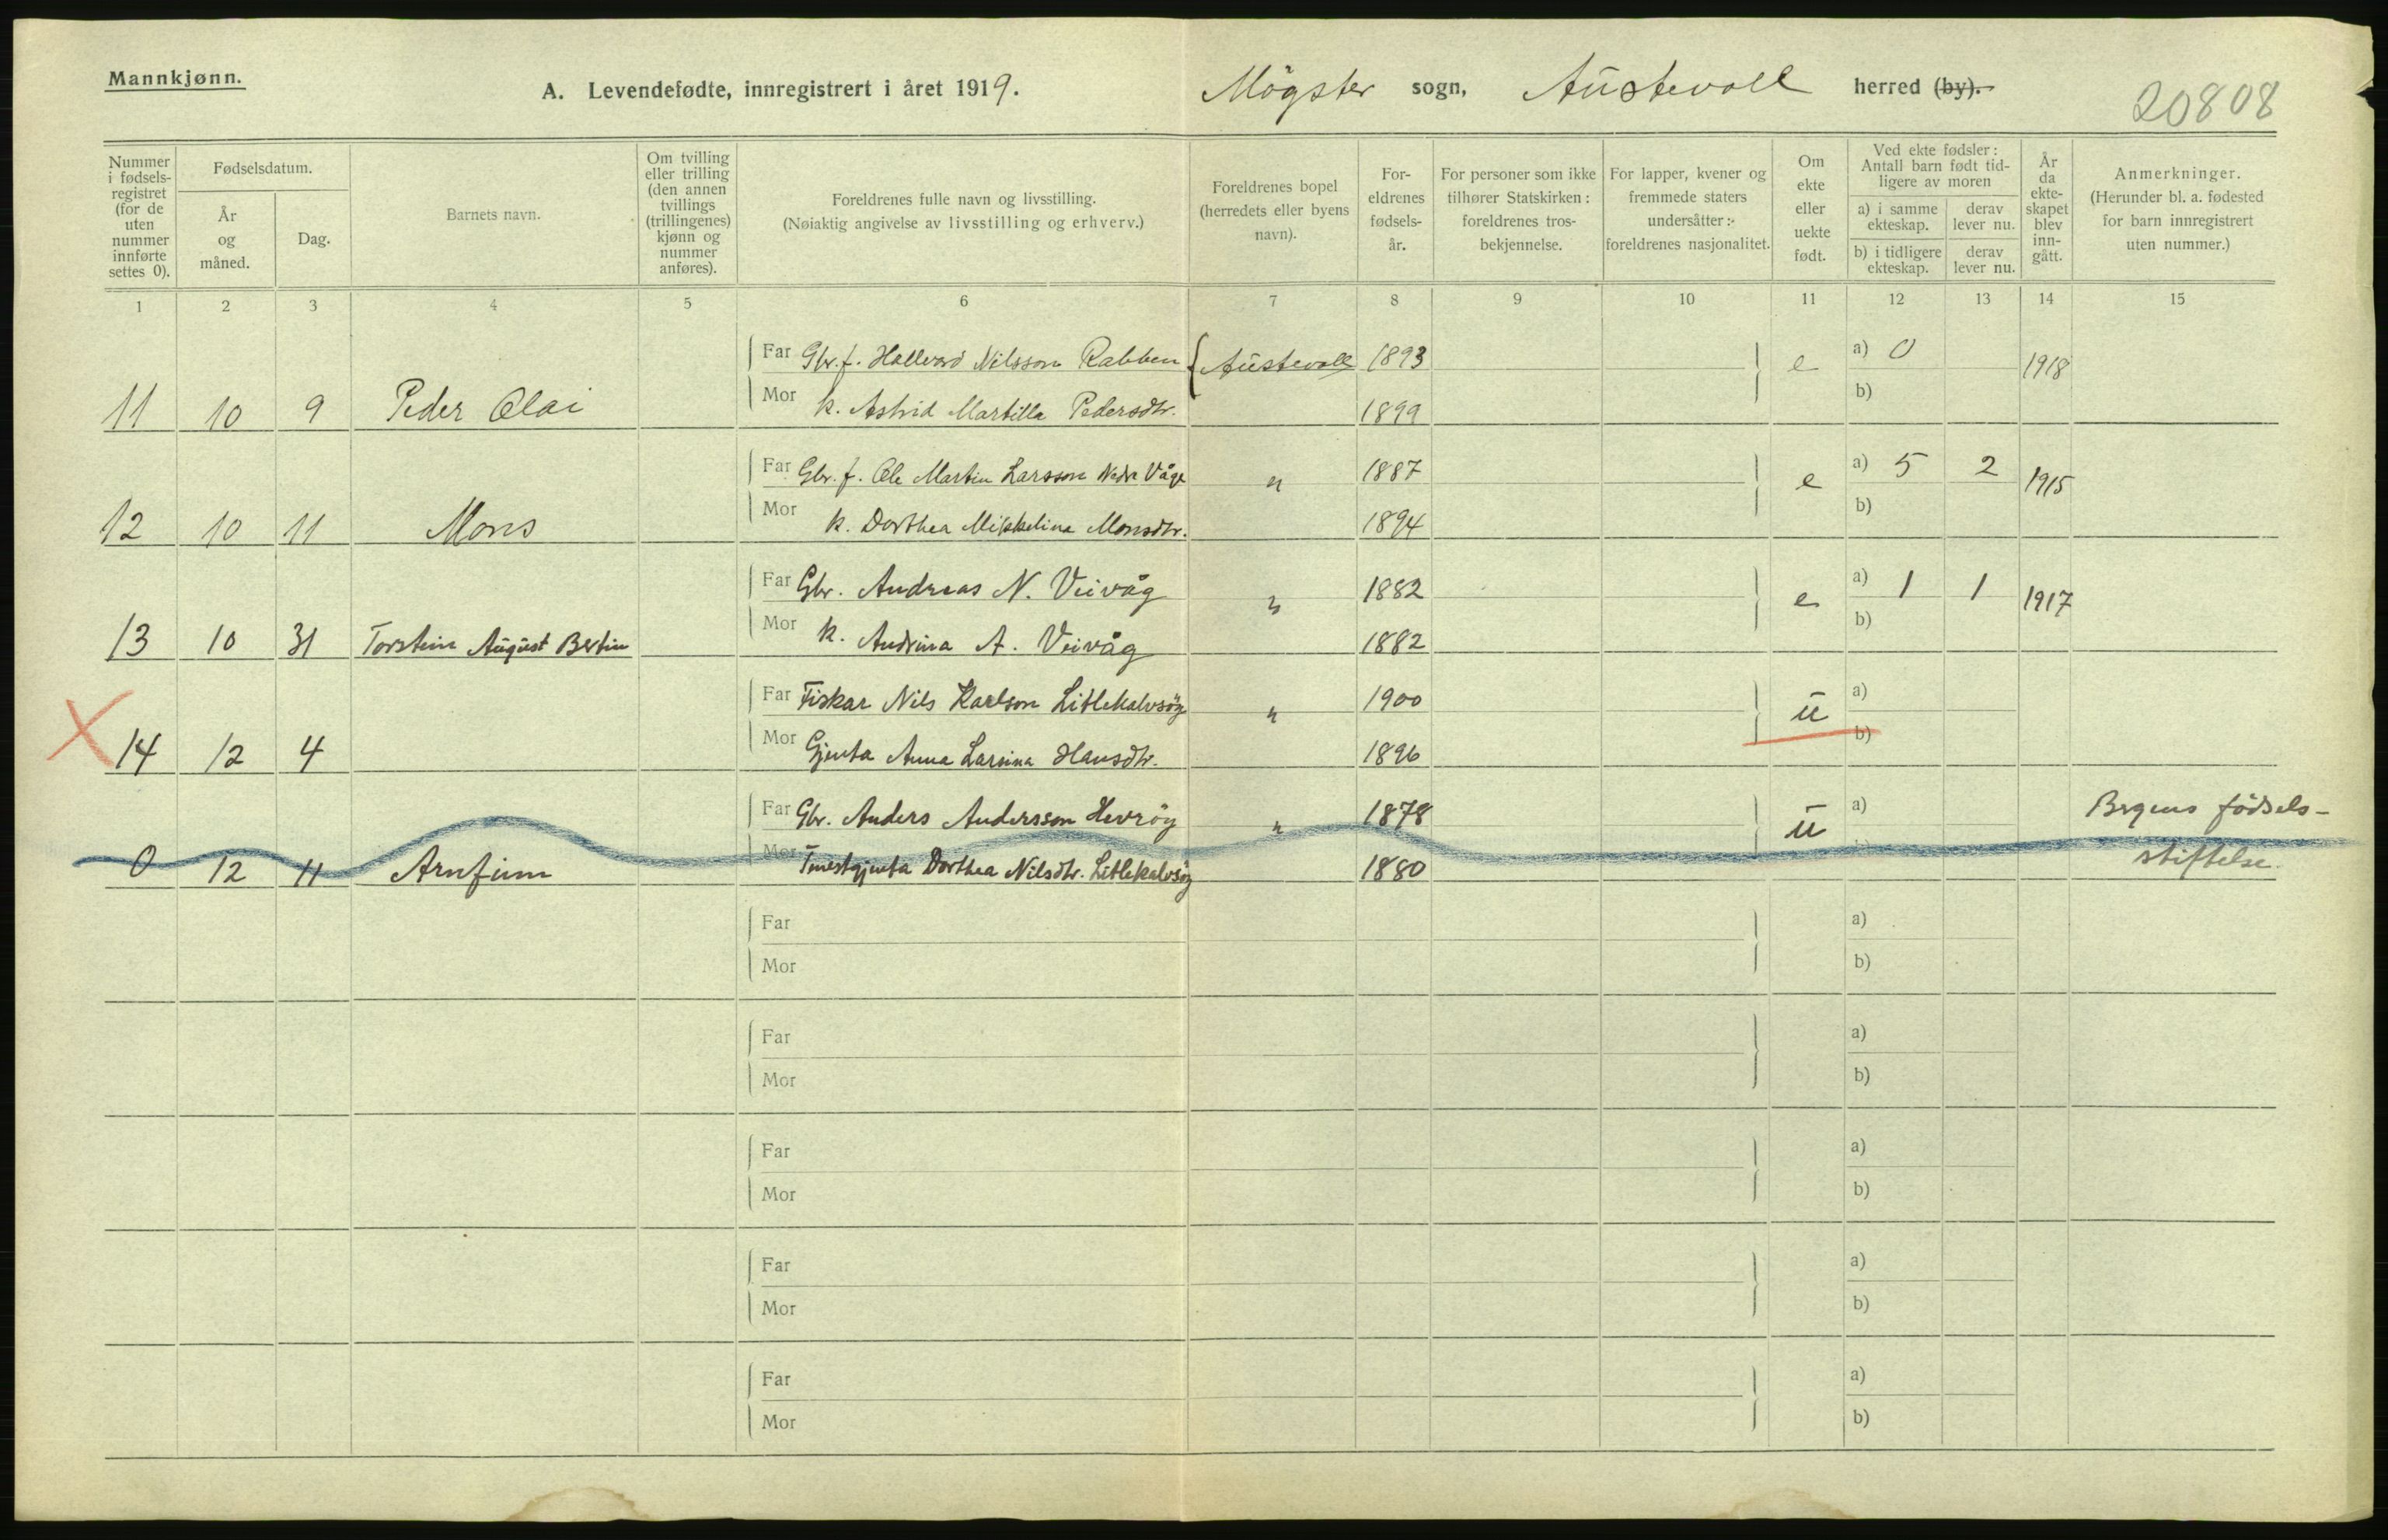 Mannkjønn.
A. Levendefødte, innregistrert i året 1919.
Mögster sogn, Austevoll herred (by).
20808
Nummer i fødsels-registret (for de uten nummer innførte settes 0).
Fødselsdatum.
År og måned.
Dag.
Barnets navn.
Om tvilling eller trilling (den annen tvillings (trillingenes) kjønn og nummer anføres).
Foreldrenes fulle navn og livsstilling.
(Nøiaktig angivelse av livsstilling og erhverv.)
Foreldrenes bopel (herredets eller byens navn).
For-eldrenes fødsels-år.
For personer som ikke tilhører Statskirken: foreldrenes tros-bekjennelse.
For lapper, kvener og fremmede staters undersåtter:- foreldrenes nasjonalitet.
Om ekte eller uekte født.
Ved ekte fødsler: Antall barn født tid-ligere av moren
a) i samme ekteskap.
derav lever nu.
b) i tidligere ekteskap.
derav lever nu.
År da ekte-skapet blev inn-gått.
Anmerkninger.
(Herunder bl. a. fødested for barn innregistrert uten nummer.)
1 2 3 4 5 6 7 8 9 10 11 12 13 14 15
Far Gbr. f. Hallvard Nilsson Rabben Austevoll 1893 e a) 0 1918
11 10 9 Peder Olai Mor k. Astrid Martilla Pedersdtr. 1899 b)
Far Gbr. f. Ole Martin Larsson Nedre Våge " 1887 e a) 5 2 1915
12 10 11 Mons Mor k. Dorthea Mikkelina Monsdtr. 1894 b)
Far Gbr. Andreas N. Veivåg " 1882 e a) 1 1 1917
13 10 31 Torstein August Bertin Mor k. Andrina A. Veivåg 1882 b)
Far Fiskar Nils Karlson Litlekalvsöy " 1900 u a)
X 14 12 4 Mor Gjenta Anna Larsina Hansdtr. 1896 b)
Far Gbr. Anders Andersson Hevröy " 1878 u a) Brgens födsels-
0 12 11 Arnfinn Mor Tenestgjenta Dorthea Nilsdtr. Litlekalvsöy 1880 stiftelse.
Far a)
Mor b)
Far a)
Mor b)
Far a)
Mor b)
Far a)
Mor b)
Far a)
Mor b)